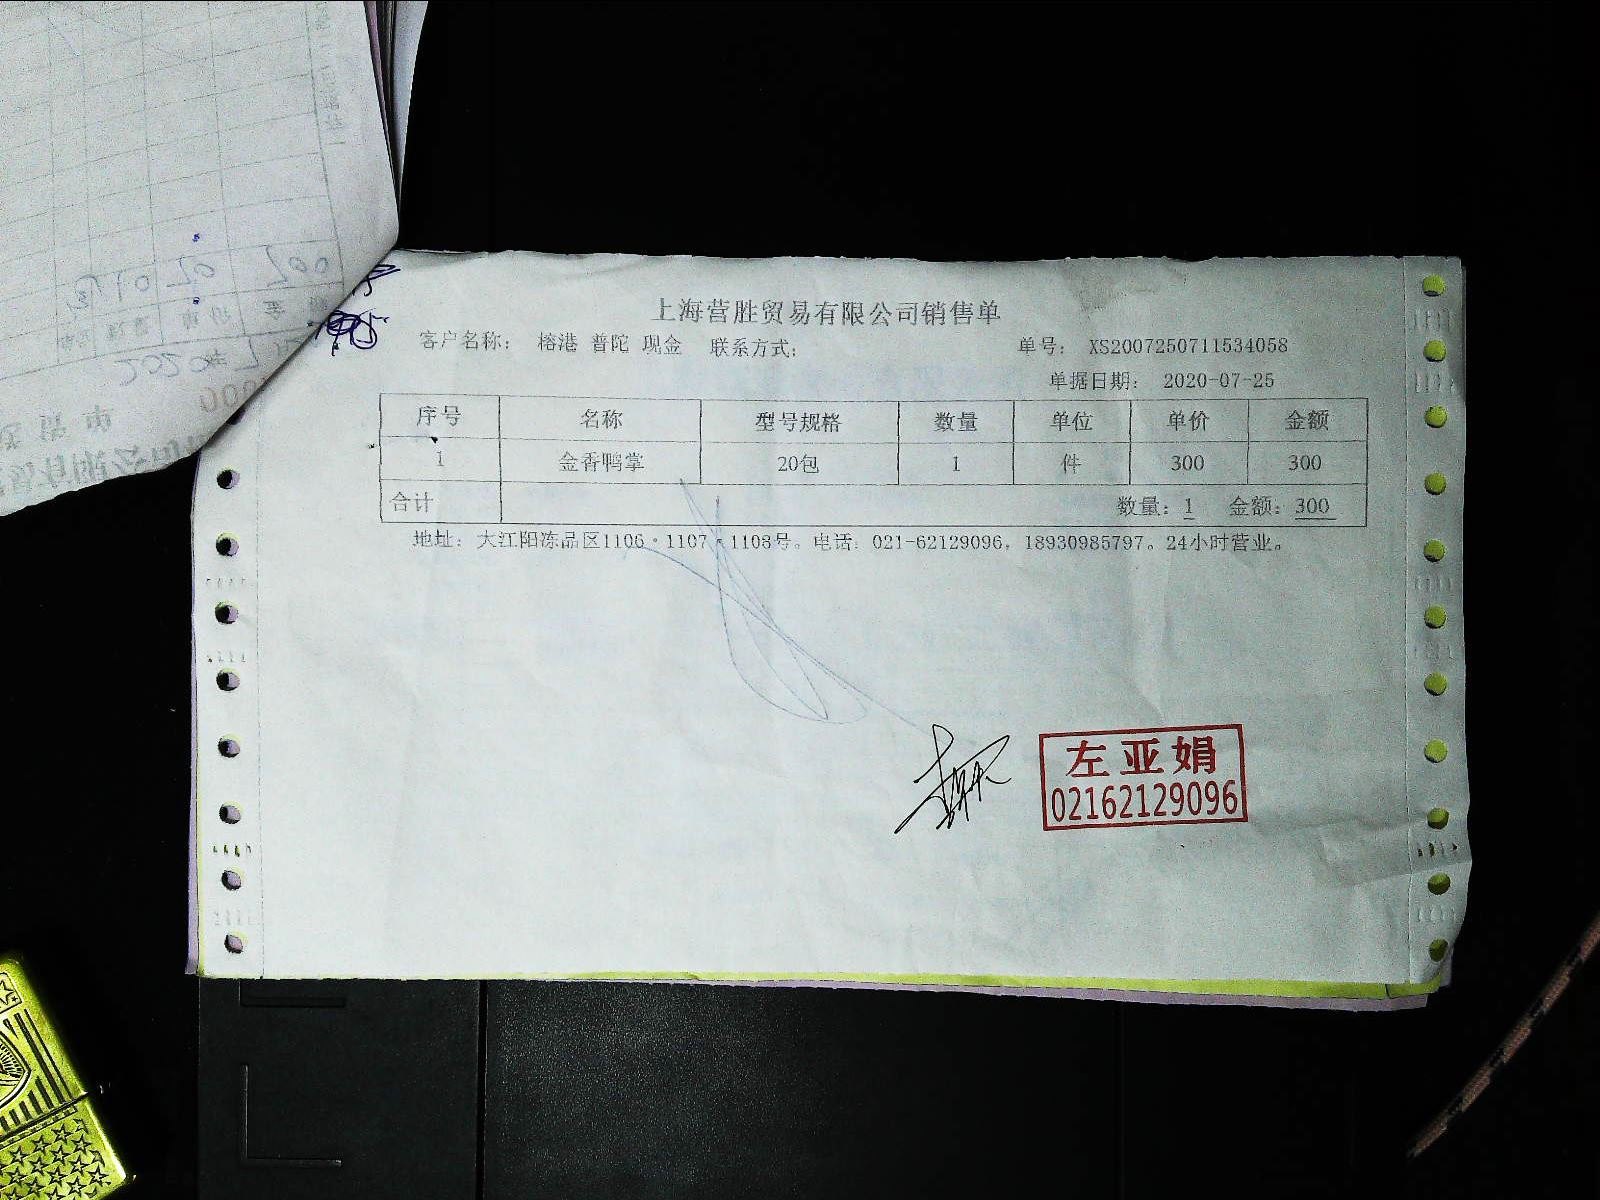 上海营胜贸易有限公司销售单
客户名称： 榕港 普陀 现金 联系方式： 单号： XS2007250711534058
单据日期： 2020-07-25
序号 名称 型号规格 数量 单位 单价 金额
1 金香鸭掌 20包 1 件 300 300
合计 数量：1 金额：300
地址：大江阳冻品区1106·1107·1108号。电话：021-62129096，18930985797。24小时营业。
左亚娟
02162129096